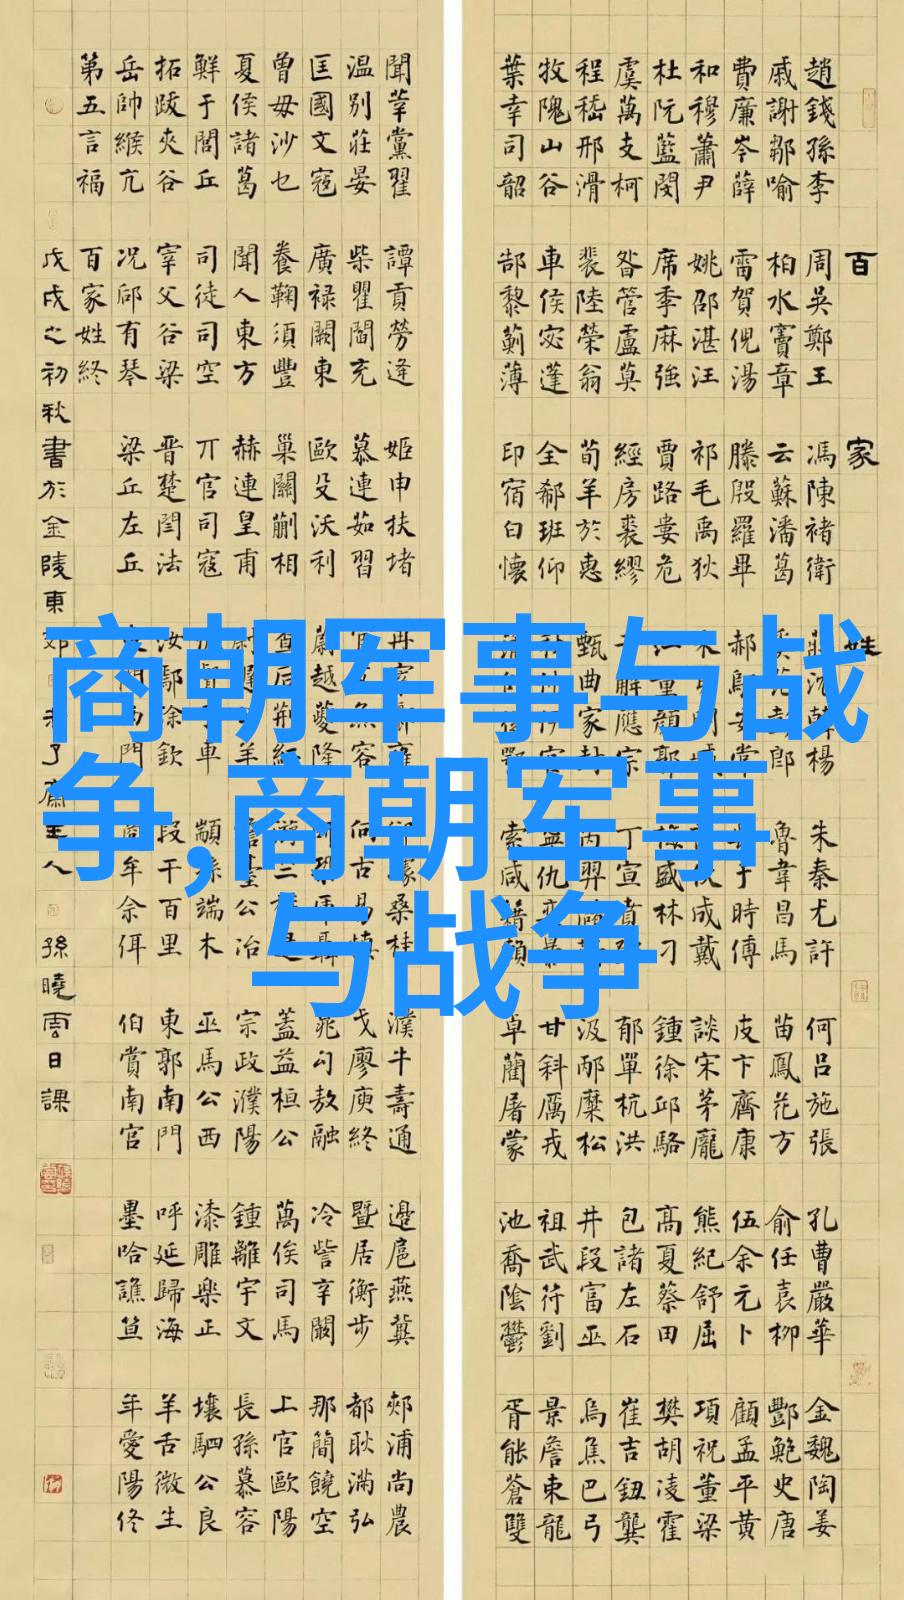 百家姓
趙錢孫李 周吳鄭王 馮陳褚衛 沈韓楊 朱秦尤許 何呂施張 孔曹嚴華 金魏陶姜
戚謝鄒喻 柏水竇章 云蘇潘葛 彭郎 魯韋昌馬 苗鳳花方 俞任袁柳 酆鮑史唐
費廉岑薛 雷賀倪湯 滕殷羅畢 郝鄔安常 于時傅 皮卞齊康 伍余元卜 顧孟平黃
和穆蕭尹 姚邵湛汪 祁毛禹狄 明 成戴 談宋茅龐 熊紀舒屈 項祝董梁
杜阮藍閔 席季麻強 賈路婁危 童顏郭 梅盛林刁 鍾徐邱駱 高夏蔡田 樊胡凌霍
虞萬支柯 昝管盧莫 經房裘繆 解應宗 丁宣賁 郁單杭洪 包諸左石 崔吉鈕龔
程嵇邢滑 裴陸榮翁 荀羊於惠 甄曲家封 芮羿 汲邴糜松 井段富巫 烏焦巴弓
牧隗山谷 車侯宓蓬 全郗班仰 仇 暴 甘斜厲戎 祖武符劉 景詹束龍
葉幸司韶 郜黎薊薄 印宿白懷 鄂 索咸籍賴 卓藺屠蒙 池喬陰鬱 胥能蒼雙
聞莘黨翟 譚貢勞逄 姬申扶堵 冉宰 雍 璩桑桂 濮牛壽通 邊扈燕冀 郟浦尚農
温別莊晏 柴瞿閻充 慕連茹習 魚容 古易慎 戈廖庾終 暨居衡步 都耿滿弘
匡國文寇 廣祿闕東 歐殳沃利 蔚越夔隆 聶 晁勾敖融 冷訾辛闞 那簡饒空
曾毋沙乜 養鞠須豐 巢關蒯相 查后荊紅 蓋益桓公 萬俟司馬 上官歐陽
夏侯諸葛 聞人東方 赫連皇甫 羊 臺公冶 宗政濮陽 鍾離宇文 長孫慕容
鮮于閭丘 司徒司空 丌官司寇 車 顓孫端木 巫馬公西 漆雕樂正 壤駟公良
拓跋夾谷 宰父谷梁 晉楚閆法 汝鄢涂欽 段干百里 東郭南門 呼延歸海 羊舌微生
岳帥緱亢 況郈有琴 梁丘左丘 門西門 牟佘佴 伯賞南宮 墨哈譙笪 年愛陽佟
第五言福 百家姓終
戊戌之初秋書於金陵東郊 了 主人 孫曉雲日課
商朝军事与战
争,商朝军事
与战争